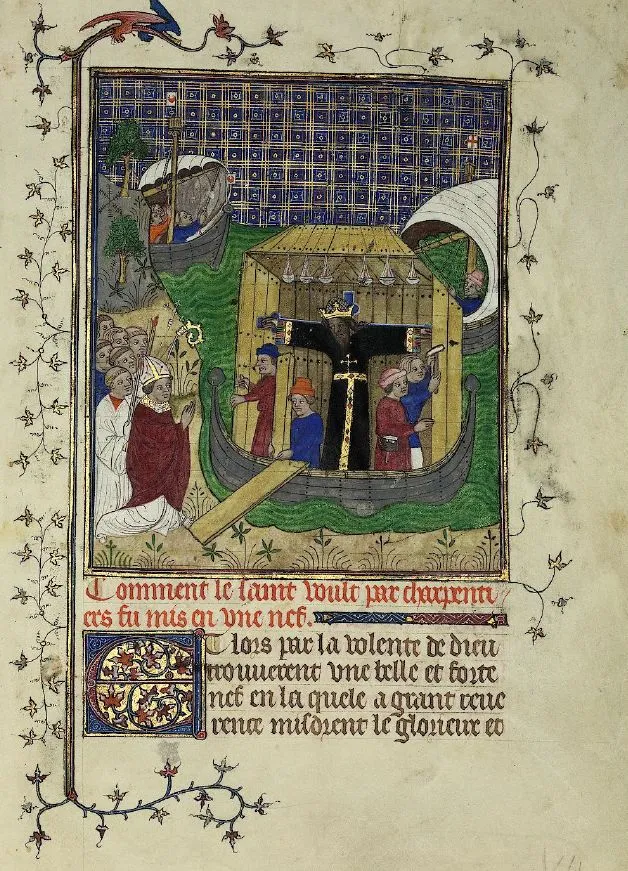 Comment le saint voult par charpenti
ers fu mis en vne nef.
Et lors par la volente de dieu
trouuerent vne belle et forte
nef en la quele a grant reue
rence misdrent le glorieux et